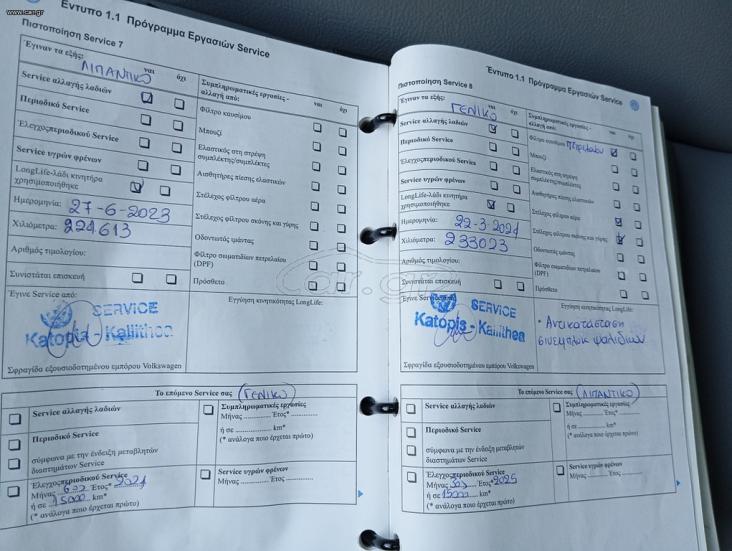 www.car.gr
Έντυπο 1.1 Πρόγραμμα Εργασιών Service
Πιστοποίηση Service 7
Έγιναν τα εξής:
ΛΙΠΑΝΤΙΚΟ
ναι όχι
Service αλλαγής λαδιών
Περιοδικό Service
Έλεγχοςπεριοδικού Service
Service υγρών φρένων
LongLife-λάδι κινητήρα
χρησιμοποιήθηκε
Ημερομηνία: 27-6-2023
Χιλιόμετρα: 224613
Αριθμός τιμολογίου:
Συνιστάται επισκευή
Συμπληρωματικές εργασίες - ναι όχι
αλλαγή από:
Φίλτρο καυσίμου
Μπουζί
Ελαστικός στη στρέψη
συμπλέκτης/συμπλέκτες
Αισθητήρες πίεσης ελαστικών
Στέλεχος φίλτρου αέρα
Στέλεχος φίλτρου σκόνης και γύρης
Οδοντωτός ιμάντας
Φίλτρο σωματιδίων πετρελαίου
(DPF)
Πρόσθετο
Έγινε Service από:
SERVICE
Katopis - Kallithea
Σφραγίδα εξουσιοδοτημένου εμπόρου Volkswagen
Εγγύηση κινητικότητας LongLife:
Το επόμενο Service σας (ΓΕΝΙΚΟ)
Service αλλαγής λαδιών
Περιοδικό Service
σύμφωνα με την ένδειξη μεταβλητών
διαστημάτων Service
Έλεγχοςπεριοδικού Service
Μήνας Έτος*
ή σε 15000 km*
(* ανάλογα ποιο έρχεται πρώτο)
Συμπληρωματικές εργασίες
Μήνας Έτος*
ή σε km*
(* ανάλογα ποιο έρχεται πρώτο)
Service υγρών φρένων
Μήνας Έτος
Έντυπο 1.1 Πρόγραμμα Εργασιών Service
Πιστοποίηση Service 8
Έγιναν τα εξής:
ΓΕΝΙΚΟ
ναι όχι
Service αλλαγής λαδιών
Περιοδικό Service
Έλεγχοςπεριοδικού Service
Service υγρών φρένων
LongLife-λάδι κινητήρα
χρησιμοποιήθηκε
Ημερομηνία: 22-3-2024
Χιλιόμετρα: 233023
Αριθμός τιμολογίου:
Συνιστάται επισκευή
Συμπληρωματικές εργασίες - ναι όχι
αλλαγή από:
Φίλτρο καυσίμου
Μπουζί
Ελαστικός στη στρέψη
συμπλέκτης/συμπλέκτες
Αισθητήρες πίεσης ελαστικών
Στέλεχος φίλτρου αέρα
Στέλεχος φίλτρου σκόνης και γύρης
Οδοντωτός ιμάντας
Φίλτρο σωματιδίων πετρελαίου
(DPF)
Πρόσθετο
Έγινε Service από:
SERVICE
Katopis - Kallithea
Σφραγίδα εξουσιοδοτημένου εμπόρου Volkswagen
Εγγύηση κινητικότητας LongLife:
• Αντικατάσταση
σινεμπλοκ ψαλιδιών
Το επόμενο Service σας (ΛΙΠΑΝΤΙΚΟ)
Service αλλαγής λαδιών
Περιοδικό Service
σύμφωνα με την ένδειξη μεταβλητών
διαστημάτων Service
Έλεγχοςπεριοδικού Service
Μήνας Έτος* 2025
ή σε 15000 km*
(* ανάλογα ποιο έρχεται πρώτο)
Συμπληρωματικές εργασίες
Μήνας Έτος*
ή σε km*
(* ανάλογα ποιο έρχεται πρώτο)
Service υγρών φρένων
Μήνας Έτος
car.gr